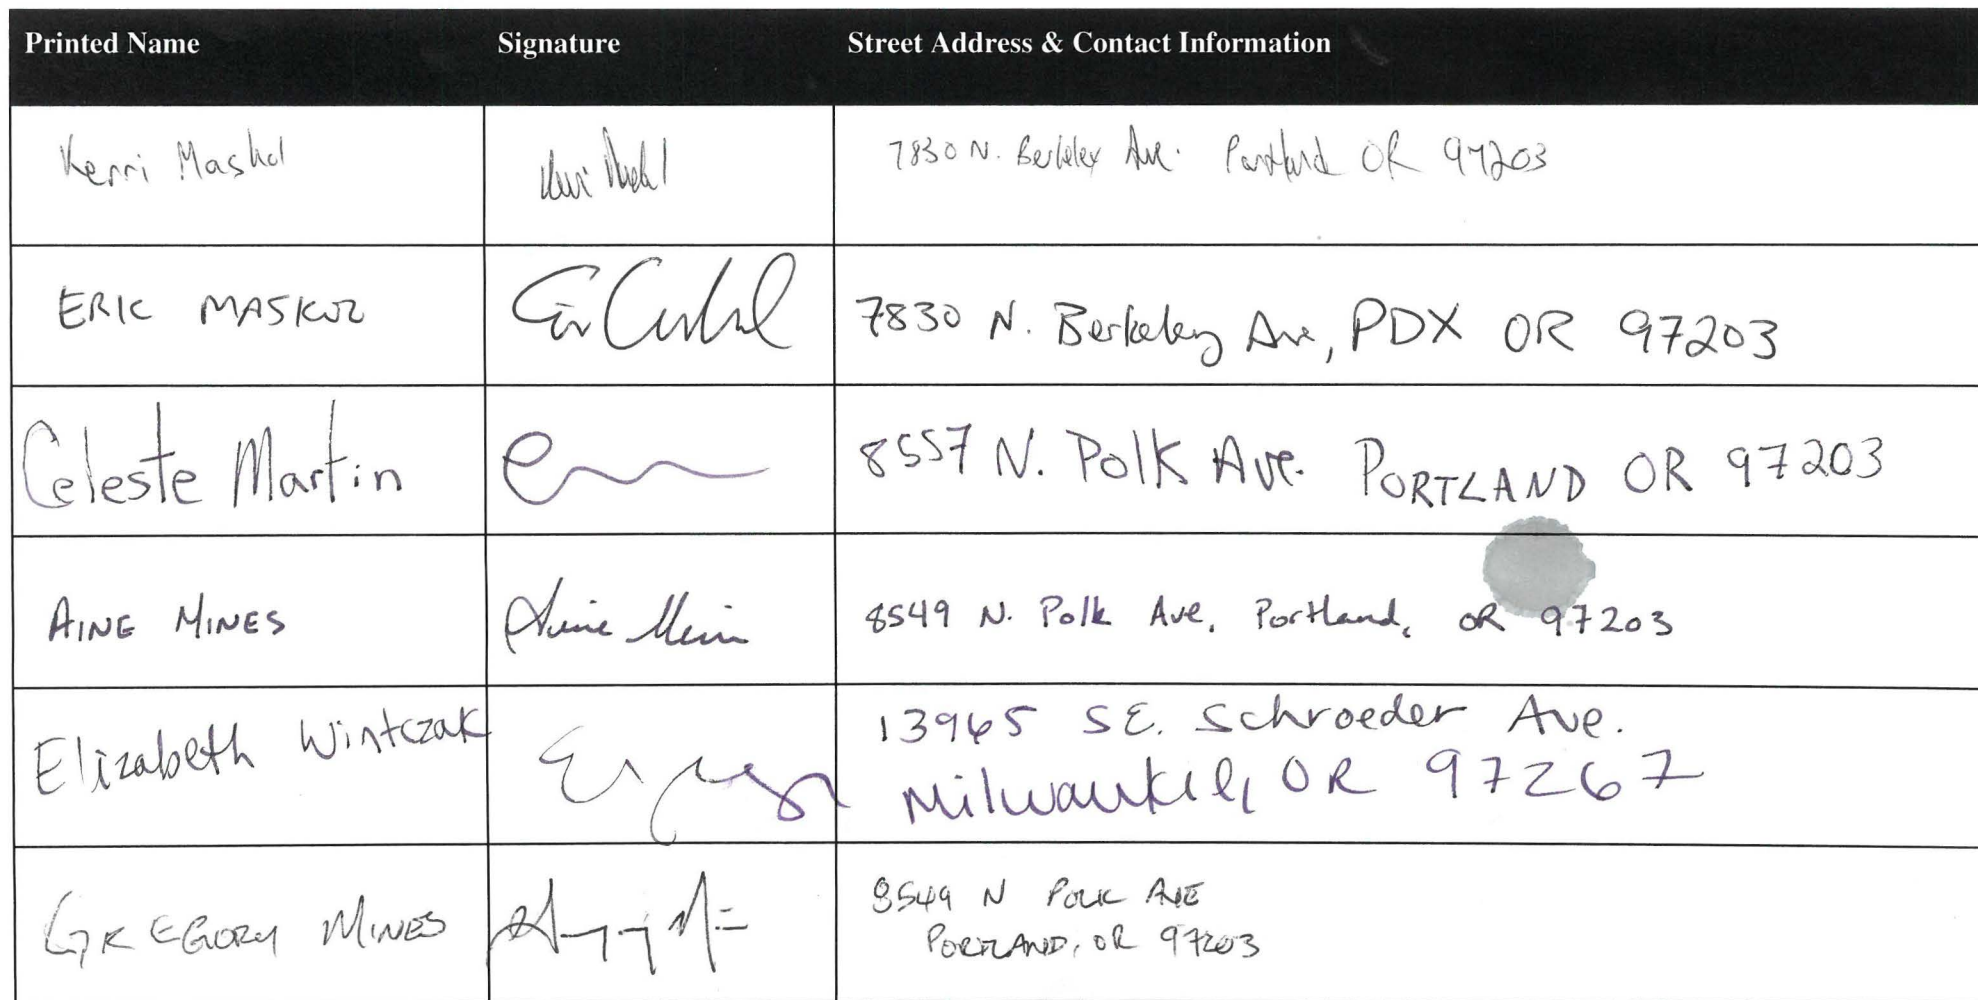 Printed Name Signature Street Address & Contact Information
Kerri Maskol 7830 N. Berkeley Ave. Portland OR 97203
ERIC MASKOL 7830 N. Berkeley Ave, PDX OR 97203
Celeste Martin 8557 N. Polk Ave. PORTLAND OR 97203
AINE MINES Aine Mines 8549 N. Polk Ave, Portland, OR 97203
Elizabeth Wintczak 13965 SE. Schroeder Ave.
Milwaukie, OR 97267
GREGORY MINES 8549 N POLK AVE
PORTLAND, OR 97203